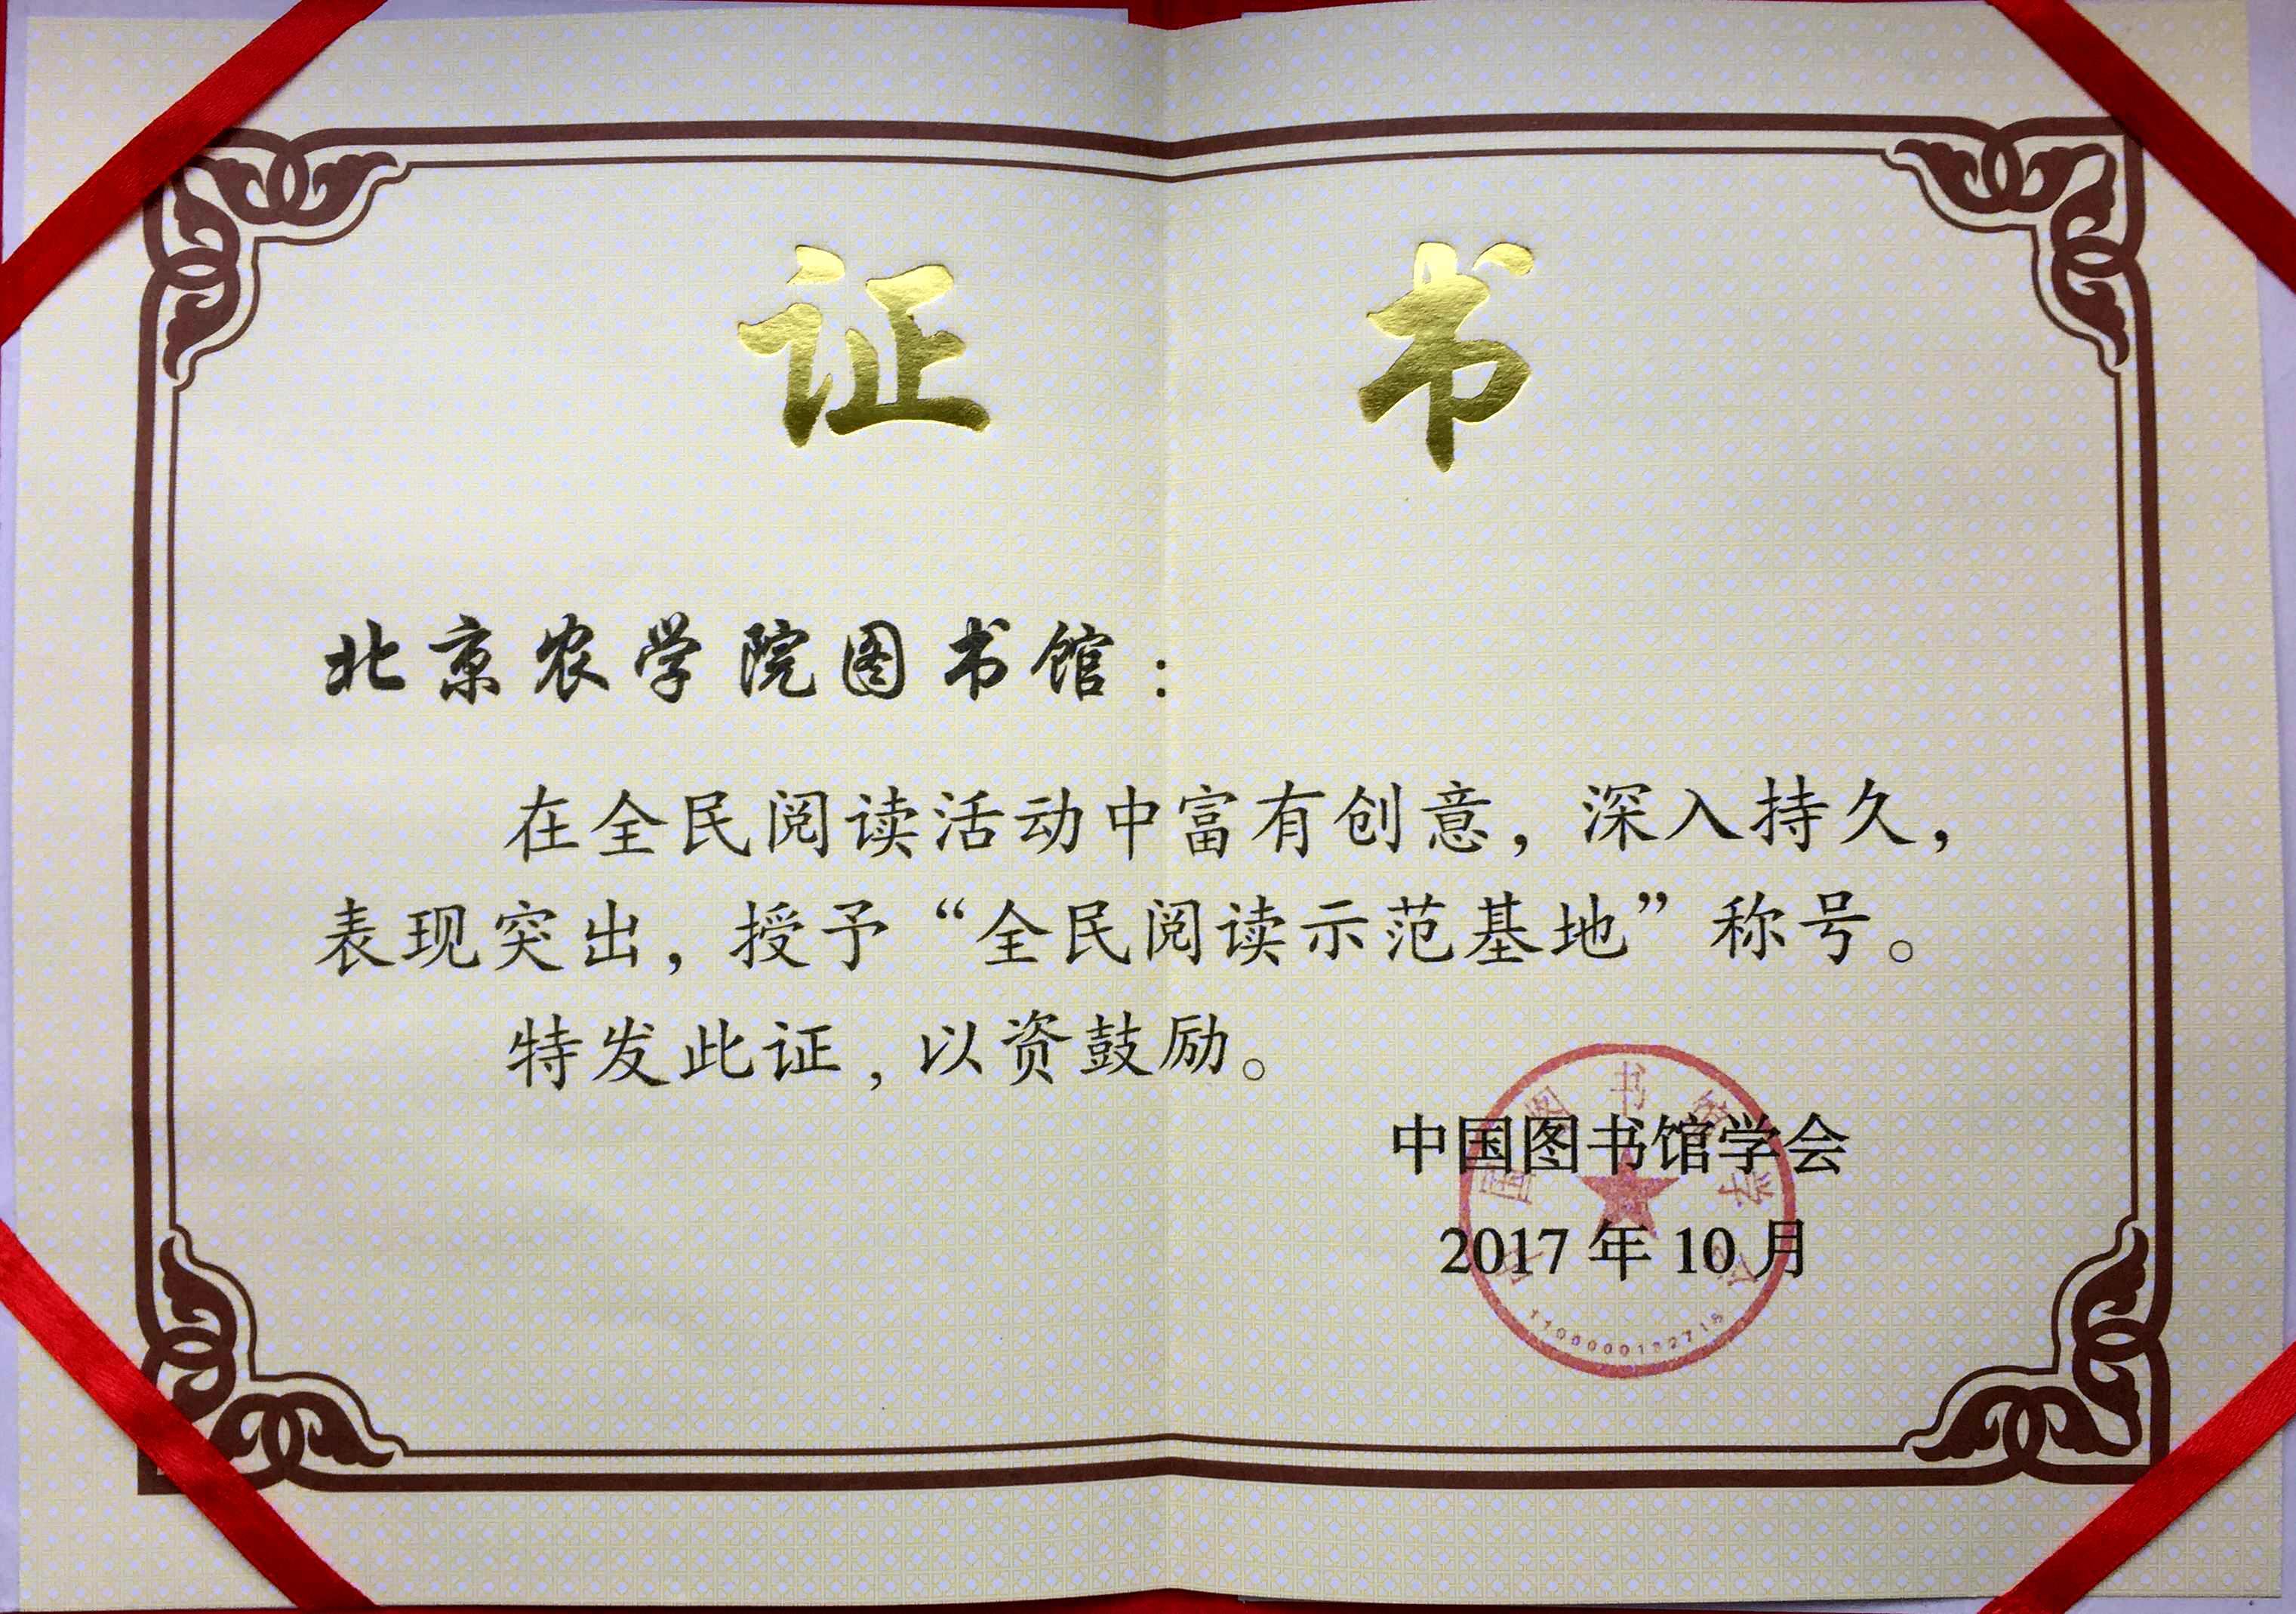 证书
北京农学院图书馆：
在全民阅读活动中富有创意，深入持久，
表现突出，授予“全民阅读示范基地”称号。
特发此证，以资鼓励。
中国图书馆学会
2017 年 10 月
中国图书馆学会